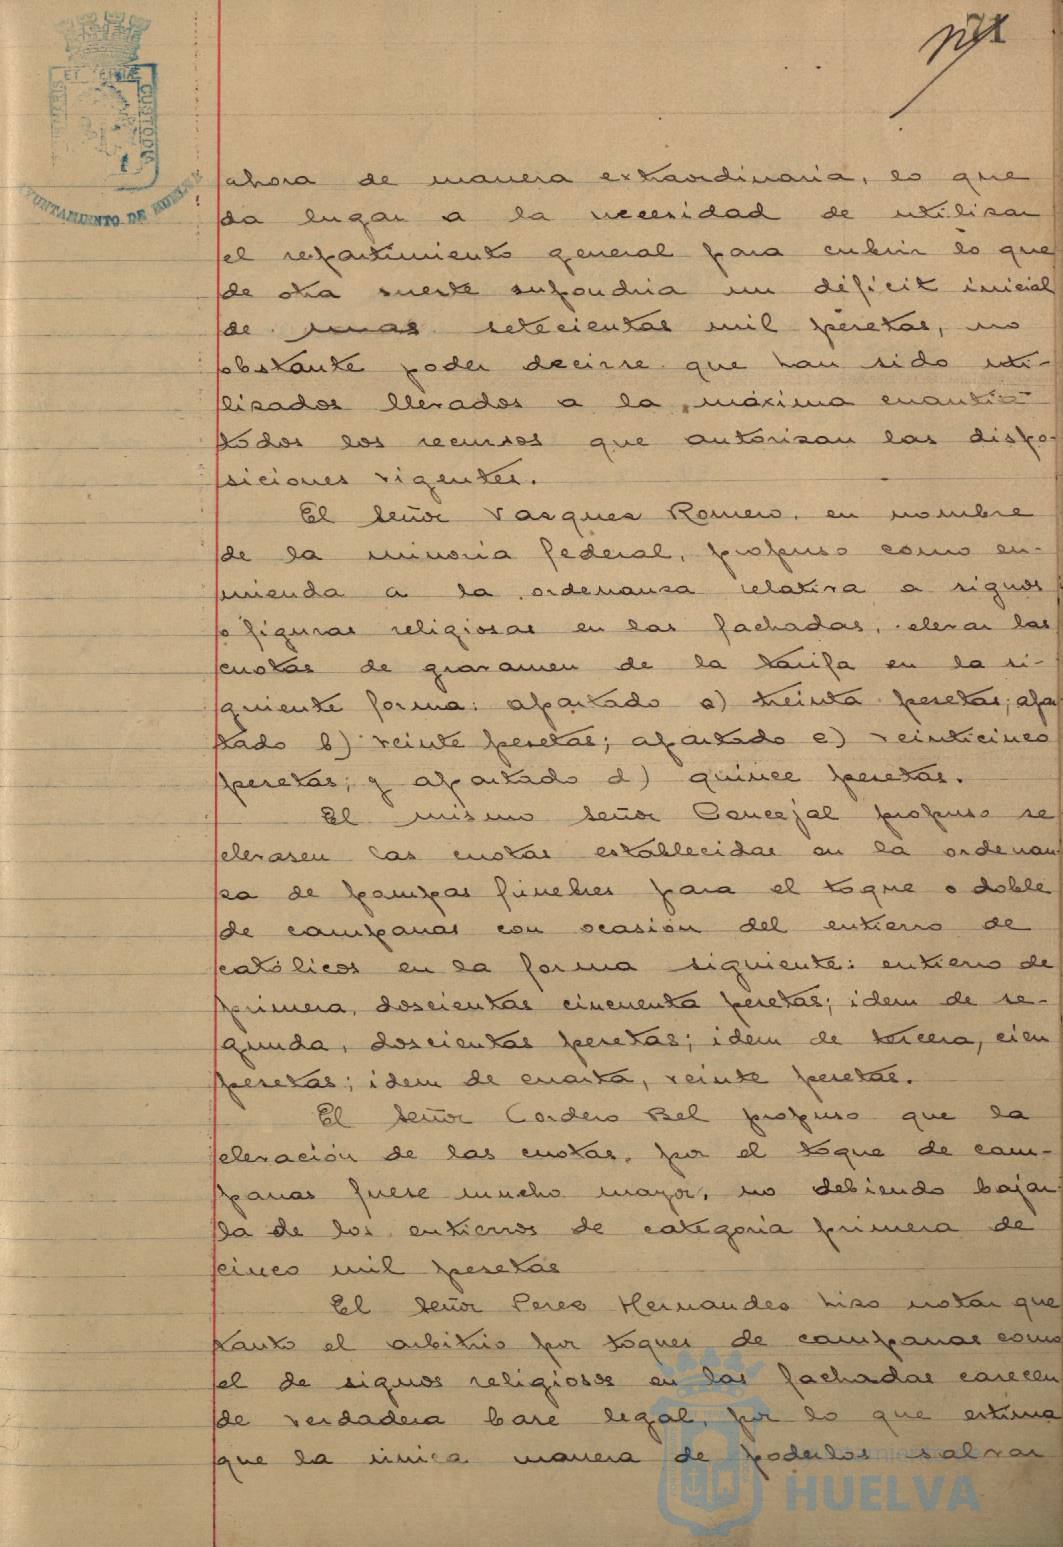 71
PORTUS MARIS ET TERRÆ CUSTODIA
AYUNTAMIENTO DE HUELVA
ahora de manera extraordinaria, lo que
da lugar a la necesidad de utilizar
el repartimiento general para cubrir lo que
de otra suerte supondria un déficit inicial
de unas setecientas mil pesetas, no
obstante poder decirse que han sido uti-
lizados llevados a la máxima cuantía
todos los recursos que autorizan las dispo-
siciones vigentes.
El Señor Vazquez Romero, en nombre
de la minoria federal, propuso como en-
mienda a la ordenanza relativa a signos
o figuras religiosas en las fachadas, elevar las
cuotas de gravamen de la tarifa en la si-
guiente forma: apartado a) treinta pesetas; apar
tado b) veinte pesetas; apartado c) veinticinco
pesetas; y apartado d) quince pesetas.
El mismo Señor Concejal propuso se
elevasen las cuotas establecidas en la ordenan
za de pompas fúnebres para el toque o doble
de campanas con ocasión del entierro de
católicos en la forma siguiente: entierro de
primera, doscientas cincuenta pesetas; idem de se-
gunda, doscientas pesetas; idem de tercera, cien
pesetas; idem de cuarta, veinte pesetas.
El Señor Cordero Bel propuso que la
elevación de las cuotas, por el toque de cam-
panas fuese mucho mayor, no debiendo bajar
la de los entierros de categoria primera de
cinco mil pesetas
El Señor Perez Hernandez hizo notar que
tanto el arbitrio por toques de campanas como
el de signos religiosos en las fachadas carecen
de verdadera base legal, por lo que estima
que la única manera de poderlos salvar
Ayuntamiento de
HUELVA